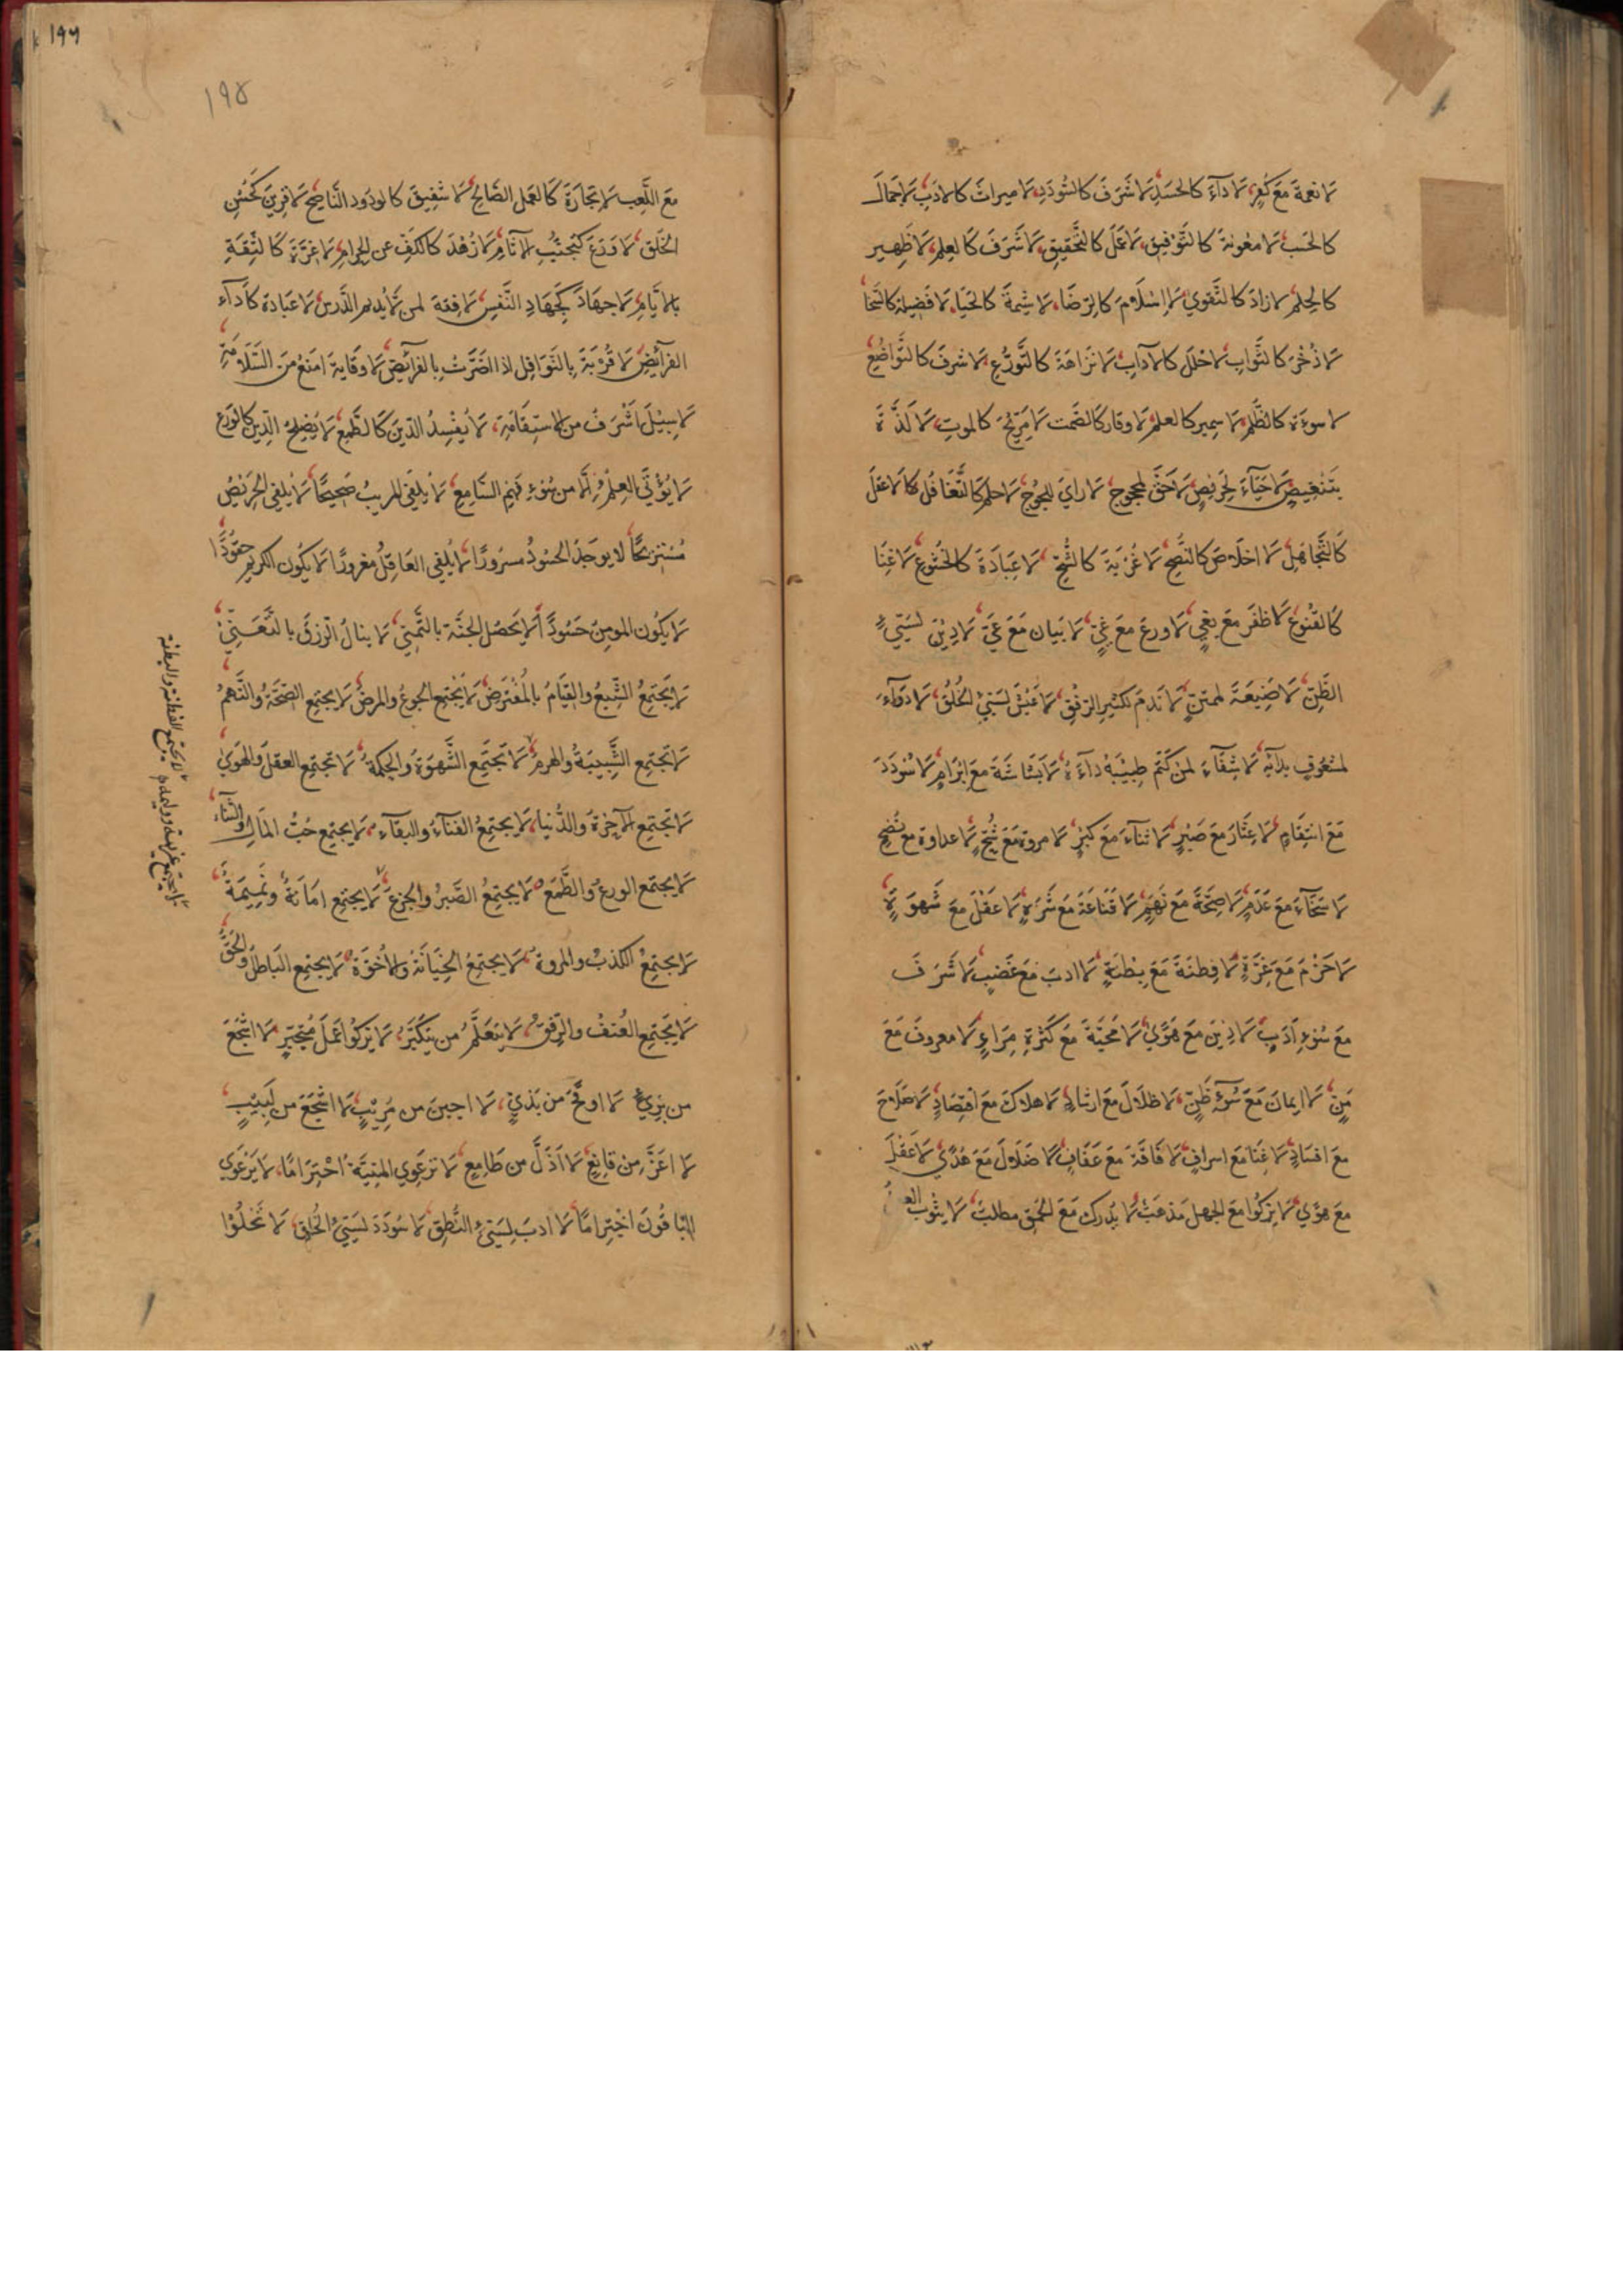 لا نعمة مع كفر، لا داء كالحسد، لا شرف كالسؤدد، لا ميراث كالادب، لا جمال
كالحسب، لا معونة كالتوفيق، لا عمل كالتحقيق، لا شرف كالعلم، لا ظهير
كالحلم، لا زاد كالتقوي، لا اسلام كالرضا، لا شيمة كالحيا، لا فضيلة كالسخا
لا ذخر كالثواب، لا حلل كالآداب، لا نزاهة كالتورع، لا شرف كالتواضع
لا سوءة كالظلم، لا سمير كالعلم، لا وقار كالصمت، لا مريح كالموت، لا لذة
بتنغيص، لا حياء لحريص، لا حق لمحجوج، لا راي للجوج، لا حلم كالتغافل، لا عقل
كالتجاهل، لا اخلاص كالنصح، لا غربة كالشح، لا عبادة كالخشوع، لا غنا
كالقنوع، لا ظفر مع بغي، لا ورع مع غي، لا بيان مع عي، لا دين لسيئ
الظن، لا ضيعة لممتن، لا ندم لكثير الرفق، لا عيش لسيئ الخلق، لا دواء
لمشعوف بدائه، لا شفاء لمن كتم طبيبه داءه، لا بشاشة مع ابرام، لا سؤدد
مع انتقام، لا عثار مع صبر، لا ثناء مع كبر، لا مروة مع شح، لا عداوة مع نصح
لا سخاء مع عدم، لا صحة مع نهم، لا قناعة مع شره، لا عقل مع شهوة
لا حزم مع غرة، لا فطنة مع بطنة، لا ادب مع غضب، لا شرف
مع سوء ادب، لا دين مع هوي، لا محبة مع كثرة مراء، لا معروف مع
من، لا ايمان مع سوء ظن، لا ظلال مع ارشاد، لا هلاك مع اقتصاد، لا صلاح
مع افساد، لا غنا مع اسراف، لا فاقة مع عفاف، لا ضلال مع هدي، لا عقل
مع هوي، لا يزكوا مع الجهل مذهب، لا يدرك مع الحمق مطلب، لا يثوب
١٩٦
١٩٥
مع اللعب، لا تجارة كالعمل الصالح، لا شفيق كالودود الناصح، لا قرين كحسن
الخلق، لا ورع كتجنب الآثام، لا زهد كالكف عن الحرام، لا غرة كالثقة
بالايام، لا جهاد كجهاد النفس، لا فقه لمن لا يديم الدرس، لا عبادة كاداء
الفرائض، لا قربة بالنوافل اذا اضرت بالفرائض، لا وقاية امنع من السلامة
لا سبيل اشرف من الاستقامة، لا يفسد الدين كالطمع، لا يصلح الدين كالورع
لا يؤتي العلم الا من سوء فهم السامع، لا يلفي المريب صحيحا، لا يلفي الحريص
مستريحا، لا يوجد الحسود مسرورا، لا يلفي العاقل مغرورا، لا يكون الكريم حقودا
لا يكون المومن حسودا، لا يحصل الجنة بالتمني، لا ينال الرزق بالتعني،
لا يجتمع الشبع والقيام بالمفترض، لا يجتمع الجوع والمرض، لا يجتمع الصحة والنهم
لا تجتمع الشبيبة والهرم، لا تجتمع الشهوة والحكمة، لا تجتمع العقل والهوي
لا تجتمع الآخرة والدنيا، لا يجتمع الفناء والبقاء، لا يجتمع حب المال والثناء
لا يجتمع الورع والطمع، لا يجتمع الصبر والجزع، لا يجتمع امانة ونميمة
لا يجتمع الكذب والمروة، لا يجتمع الخيانة والاخوة، لا يجتمع الباطل والحق
لا يجتمع العنف والرفق، لا يتعلم من يتكبر، لا يزكوا عمل متجبر، لا اشجع
من بريء، لا اوقح من بذي، لا اجبن من مريب، لا اشجع من لبيب،
لا اعز من قانع، لا اذل من طامع، لا ترعوي المنية احتراما، لا يرعوي
الباقون اختراما، لا ادب لسيئ النطق، لا سؤدد لسيئ الخلق، لا تخلوا
لا يجتمع الفطنة والبطنة
لا يجتمع عزيمة ووليمة